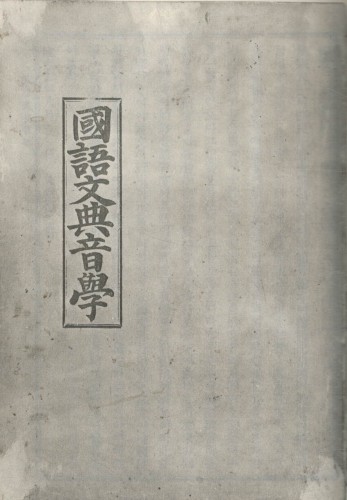 國語文典音學